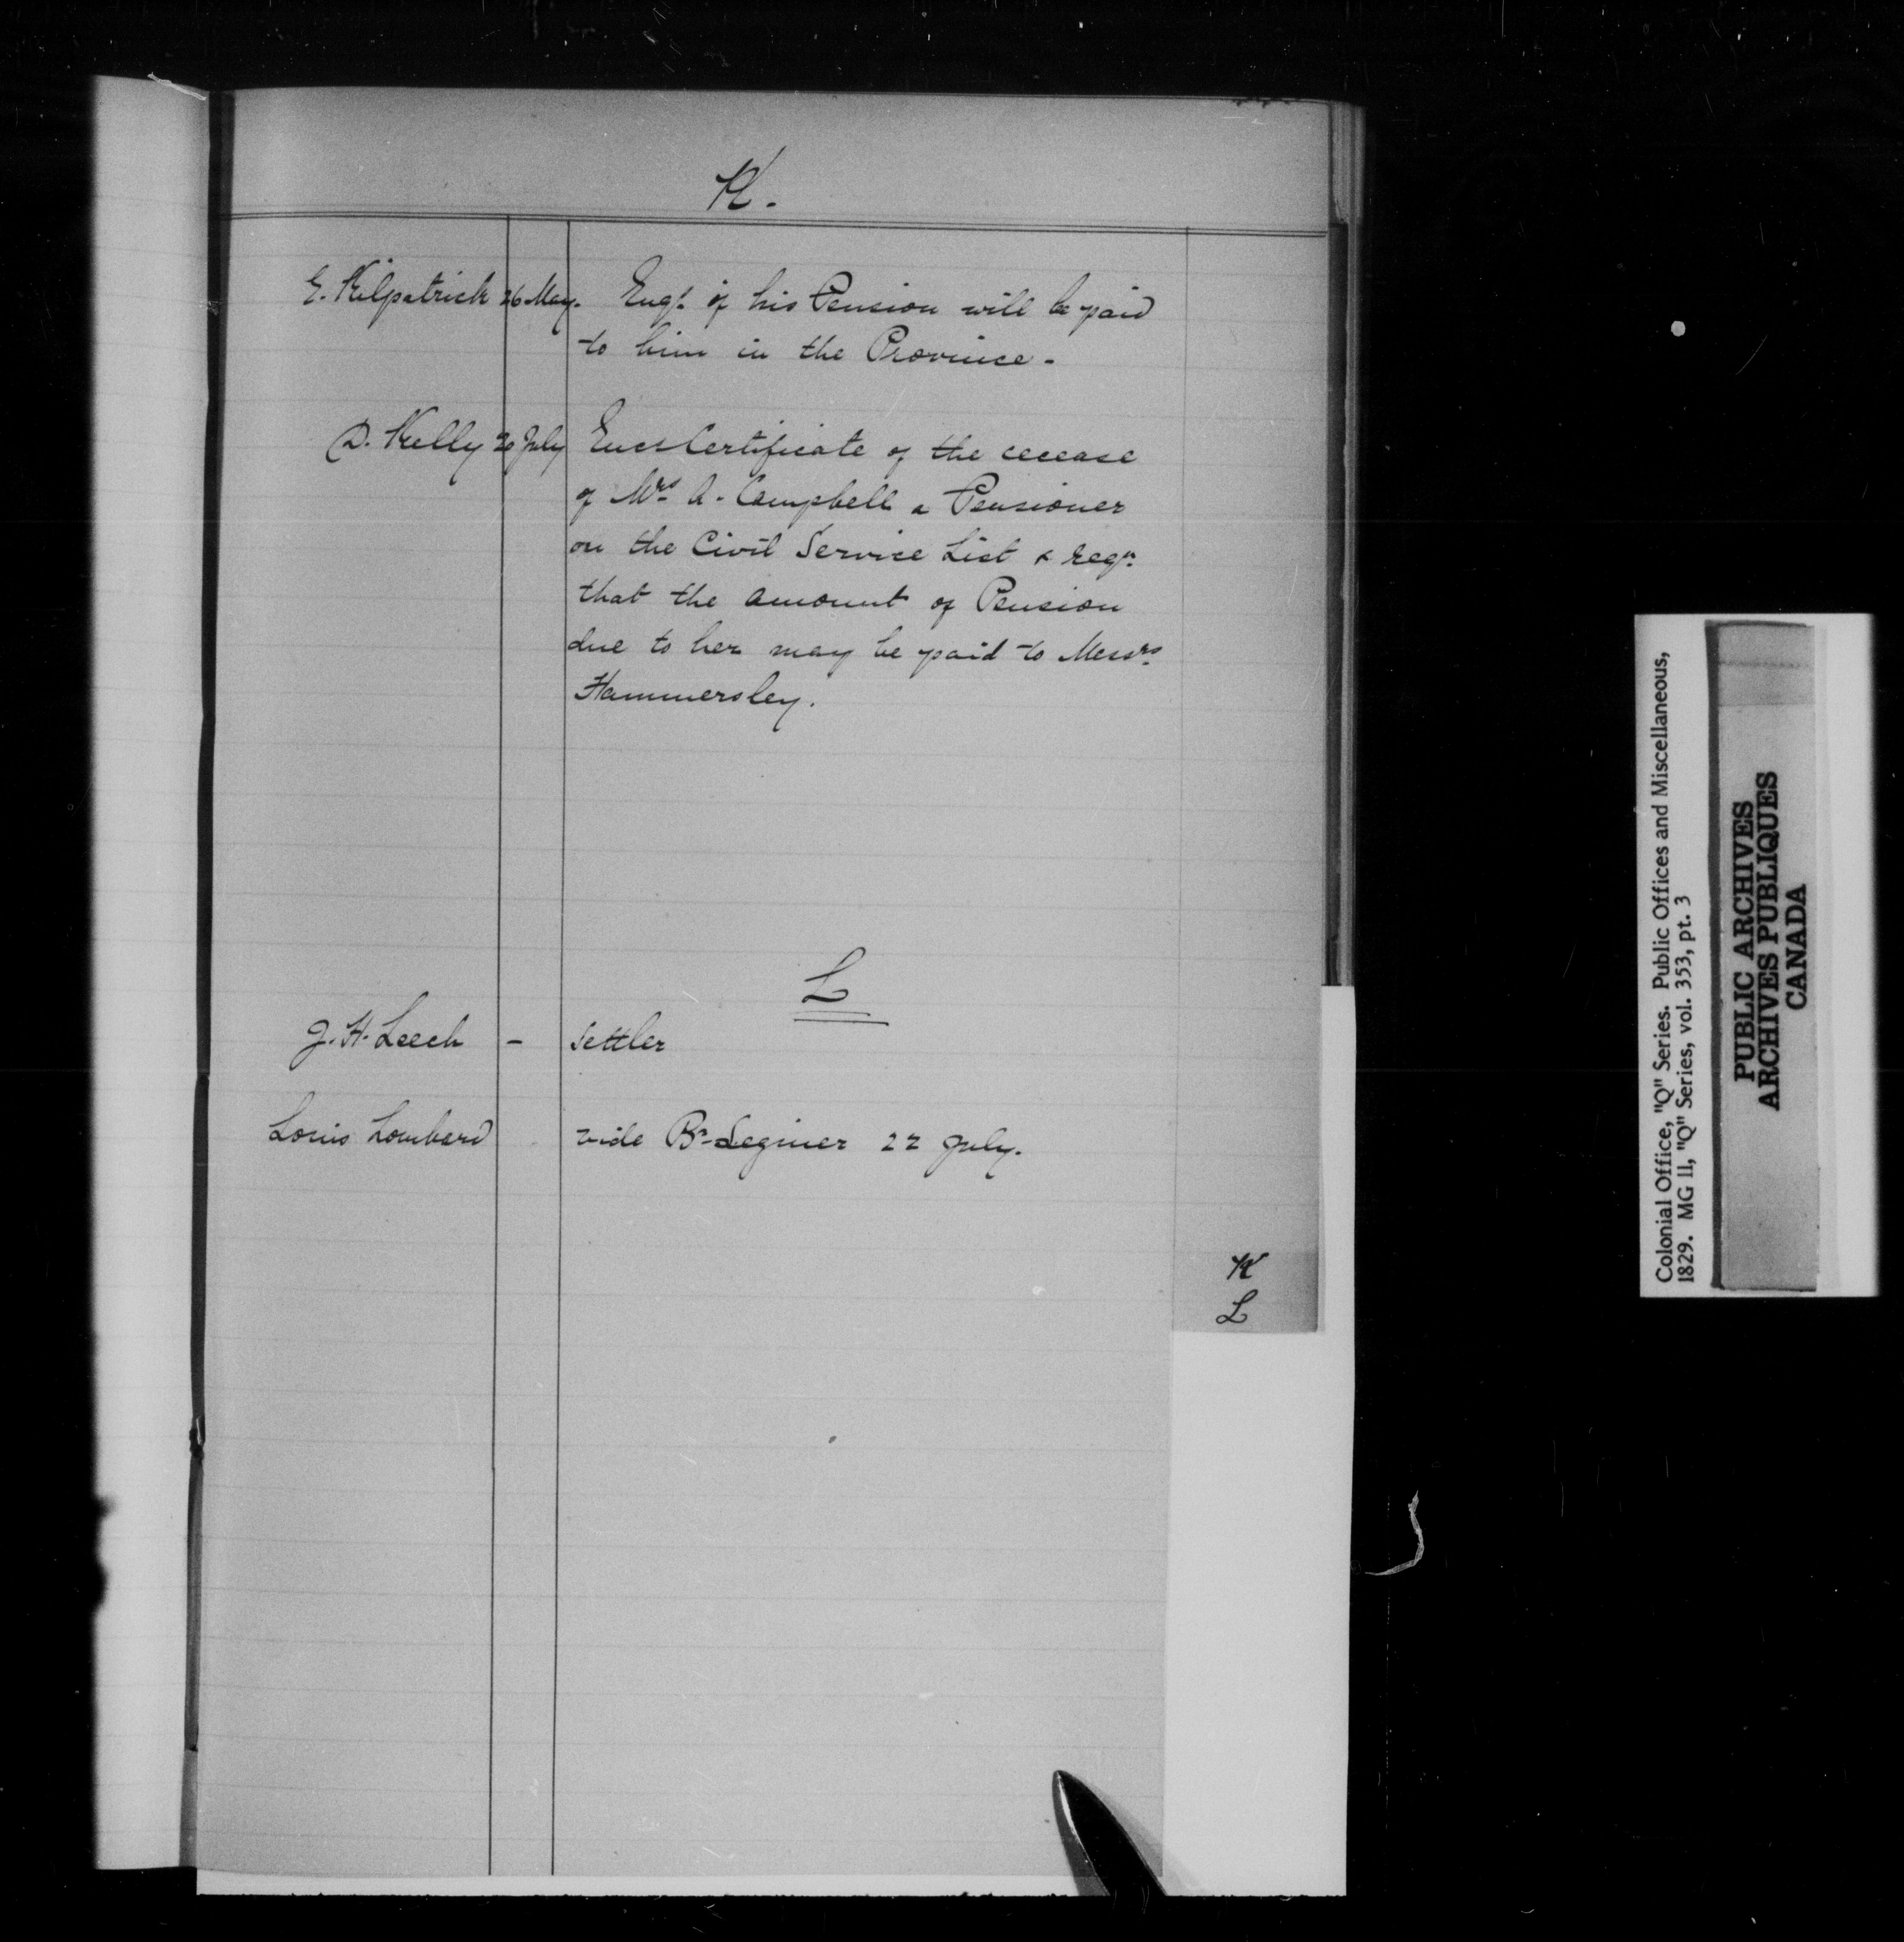 K.
E. Kilpatrick 26 May. Enqs. if his Pension will be paid
to him in the Province -
D. Kelly 20 July Encs Certificate of the decease
of Mrs. A. Campbell a Pensioner
on the Civil Service List & reqs.
that the amount of Pension
due to her may be paid to Messrs.
Hammersley.
L
J. H. Leech - Settler
Louis Lombard vide Bn. Leginer 22 July.
K
L
Colonial Office, "Q" Series. Public Offices and Miscellaneous,
1829. MG 11, "Q" Series, vol. 353, pt. 3
PUBLIC ARCHIVES
ARCHIVES PUBLIQUES
CANADA